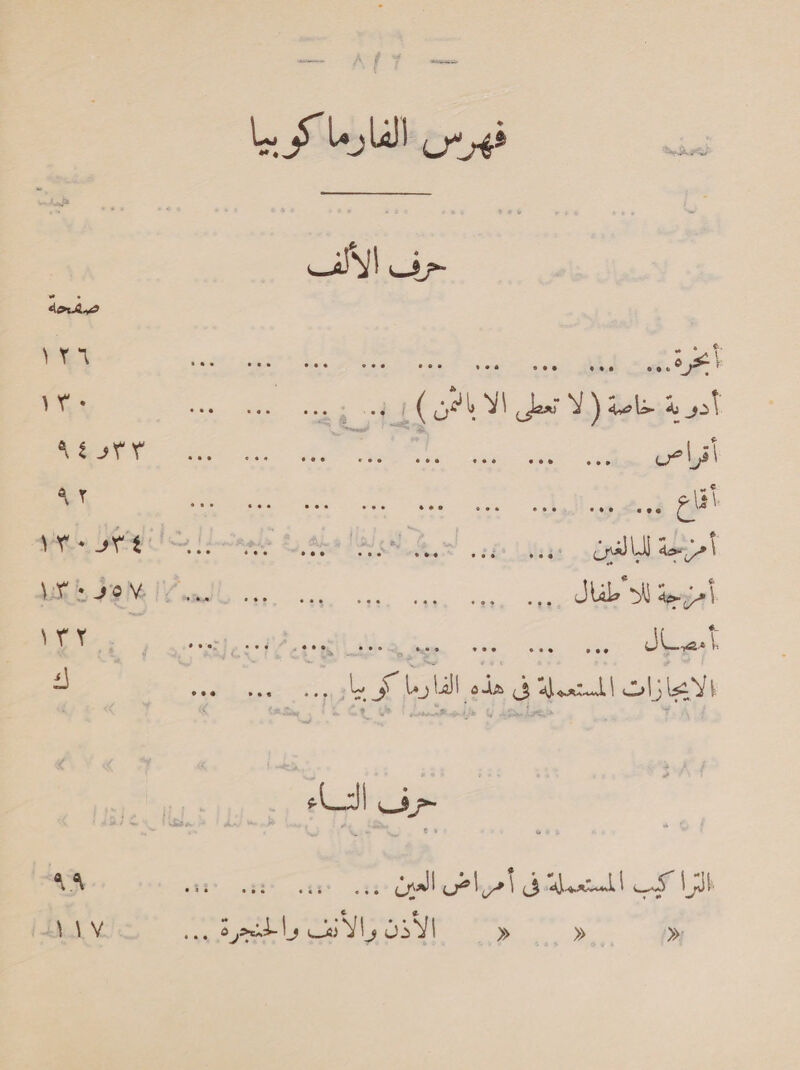 فهرس الفارماكوبيا
حرف الألف
صفحة
أبخرة ... ... ... ... ... ... ... ... ... ١٢٦
أدوية خاصة ( لا تعطى الا بالثمن ) ... ... ... ... ١٣٠
أقراص ... ... ... ... ... ... ... ... ٣٣و٩٤
أقماع ... ... ... ... ... ... ... ... ... ٩٢
أمزجة للبالغين ... ... ... ... ... ... ... ٣٤و١٣٠
أمزجة للأطفال ... ... ... ... ... ... ... ٥٧و١٣٠
أمصال ... ... ... ... ... ... ... ... ١٣٢
الايجازات المستعملة فى هذه الفارماكوبيا ... ... ... ... ك
حرف التاء
التراكيب المستعملة فى أمراض العين ... ... ... ... ٩٩
« « « الأذن والأنف والحنجرة ... ١١٧